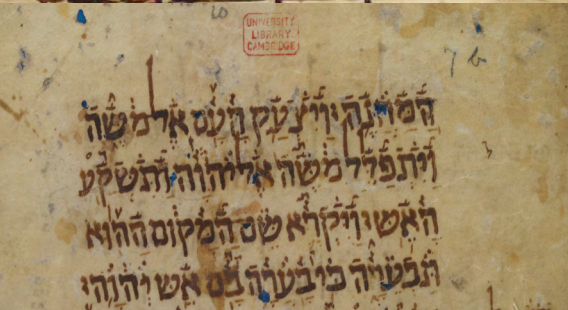 UNIVERSITY
LIBRARY
CAMBRIDGE
המחנה׃ ויצעק העם אל משה
ויתפלל משה אל יהוה ותשקע
האש׃ ויקרא שם המקום ההוא
תבערה כי בערה בם אש יהוה׃